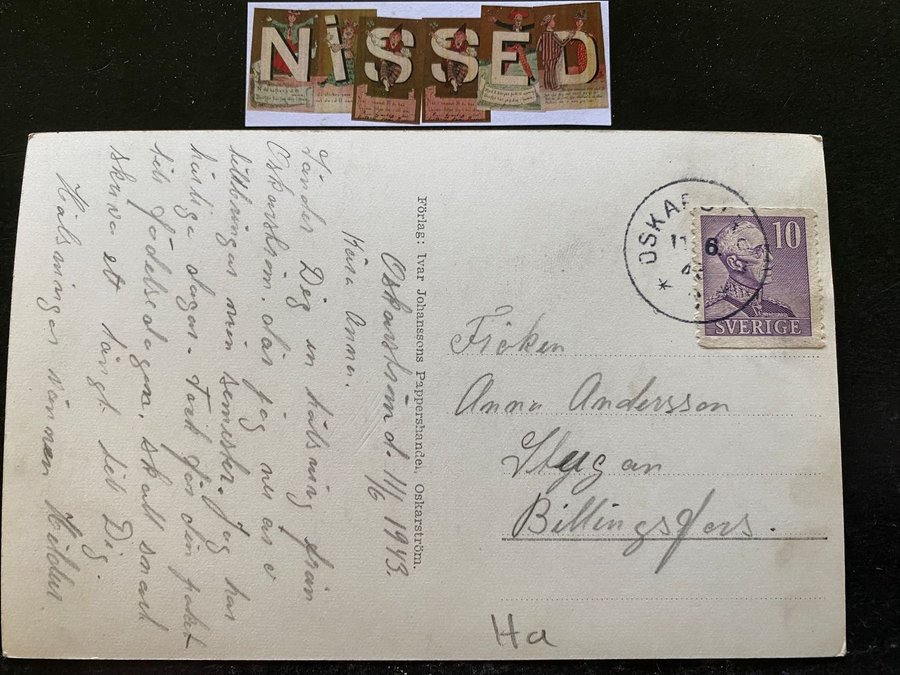 NiSSED
Oskarström d. 11/6 1943.
Kära Anna.
Sänder Dig en hälsning från
Oskarström. där jag nu är o
tillbringar min semester. Jag har
härliga dagar. Tack för din paket
till födelsedagen, skall snart
skriva ett långt till Dig.
Hälsningar vännen
Förlag: Ivar Johanssons Pappershandel, Oskarström.
OSKARS
11 6
4
10
SVERIGE
Fröken
Anna Andersson
Stugan
Billingsfors.
Ha